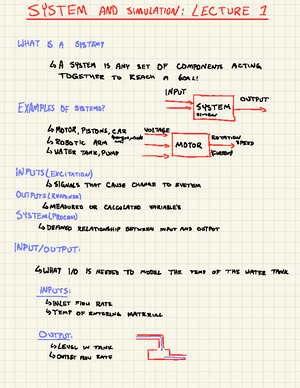 SYSTEM AND SIMULATION: LECTURE 1
WHAT IS A SYSTEM?
↳ A SYSTEM IS ANY SET OF COMPONENTS ACTING
TOGETHER TO REACH A GOAL!
INPUT
SYSTEM
OUTPUT
EXAMPLES OF SYSTEMS?
↳ MOTOR, PISTONS, CAR
↳ ROBOTIC ARM
↳ WATER TANK, PUMP
VOLTAGE
MOTOR
ROTATION
SPEED
CURRENT
INPUTS (EXCITATION)
↳ SIGNALS THAT CAUSE CHANGE TO SYSTEM
OUTPUTS (RESPONSE)
↳ MEASURED OR CALCULATED VARIABLES
SYSTEM (PROCESS)
↳ DEFINED RELATIONSHIP BETWEEN INPUT AND OUTPUT
INPUT/OUTPUT:
↳ WHAT I/O IS NEEDED TO MODEL THE TEMP OF THE WATER TANK
INPUTS:
↳ INLET FLOW RATE
↳ TEMP OF ENTERING MATERIAL
OUTPUT:
↳ LEVEL IN TANK
↳ OUTLET FLOW RATE